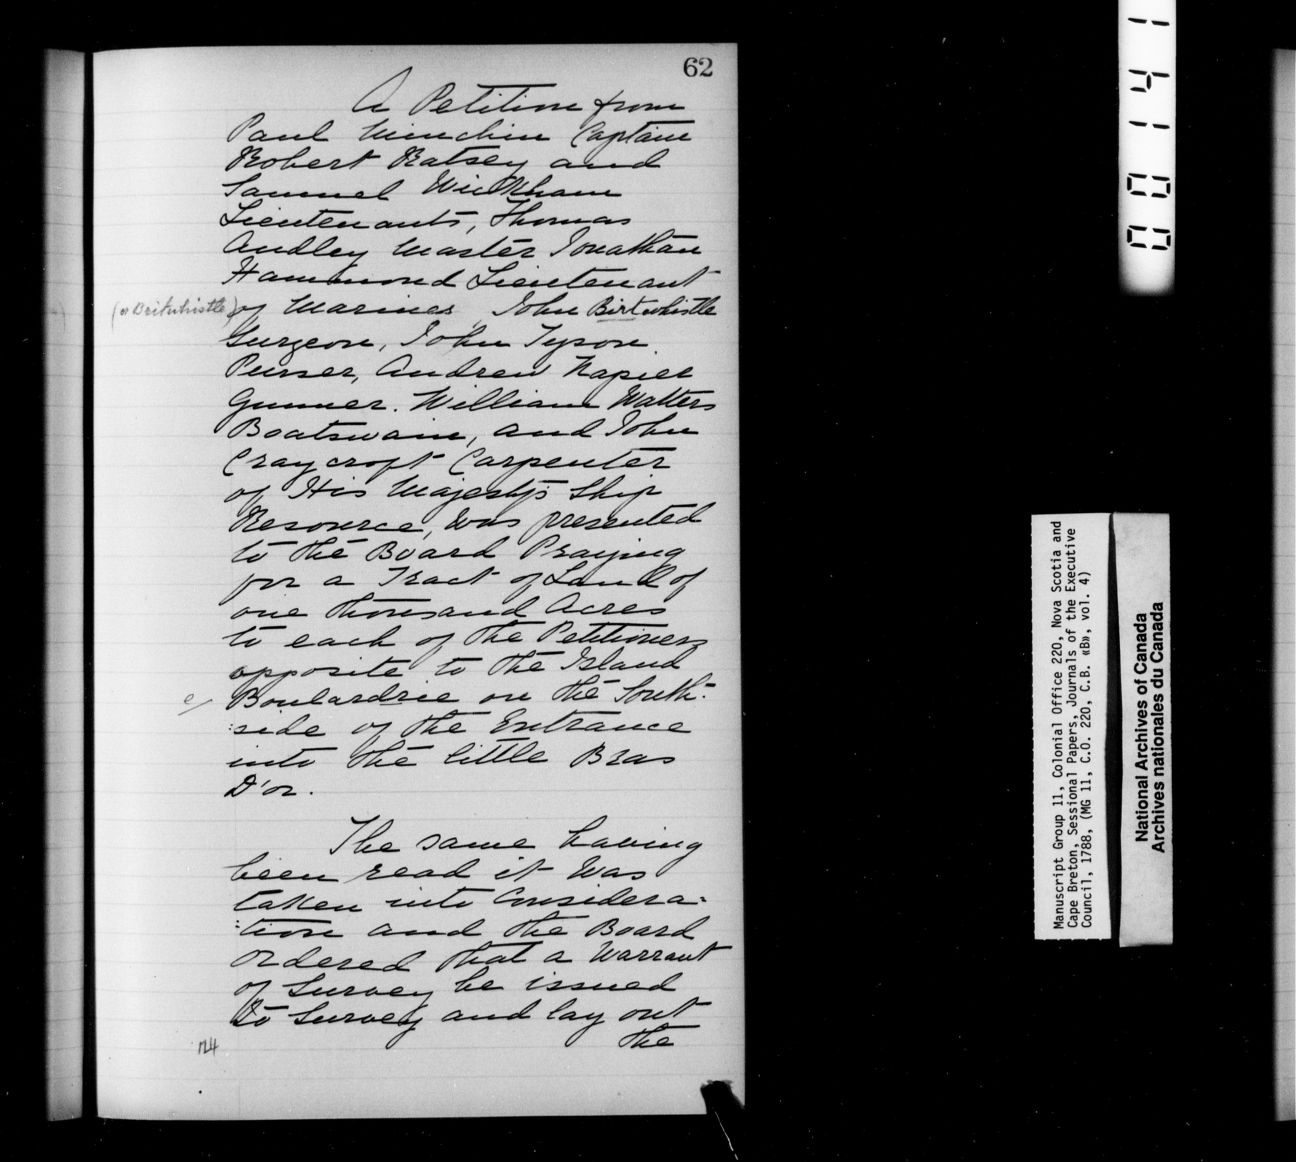 62
A Petition from
Paul Minchin Captain
Robert Ratsey and
Samuel Wickham
Lieutenants, Thomas
Audley Master Jonathan
Hammond Lieutenant
(or Britwhistle) of Marines, John Birtwhistle
Surgeon, John Tyson
Purser, Andrew Napier
Gunner. William Watters
Boatswain, and John
Craycroft Carpenter
of His Majesty's Ship
Resource, was presented
to the Board Praying
for a Tract of Land of
one thousand Acres
to each of the Petitioners
opposite to the Island
e/ Boulardrie on the South-
:side of the Entrance
into the little Bras
D'or.
The same having
been read it was
taken into Considera-
:tion and the Board
ordered that a Warrant
of Survey be issued
to Survey and lay out
the
124
00141
Manuscript Group 11, Colonial Office 220, Nova Scotia and
Cape Breton, Sessional Papers, Journals of the Executive
Council, 1788, (MG 11, C.O. 220, C.B. «B», vol. 4)
National Archives of Canada
Archives nationales du Canada